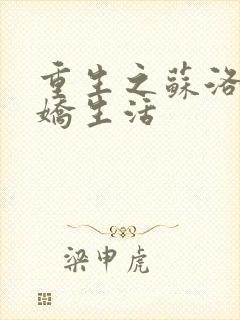 重生之蘇洛
嬌生活
梁申虎